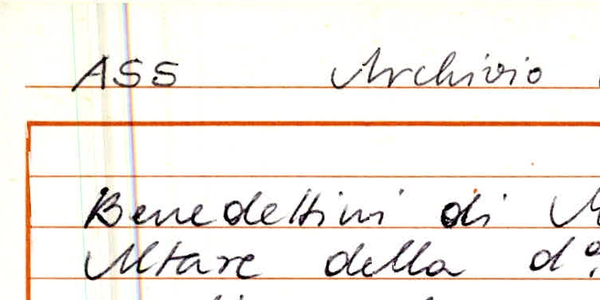 ASS Archivio
Benedettini di
Altare della d°